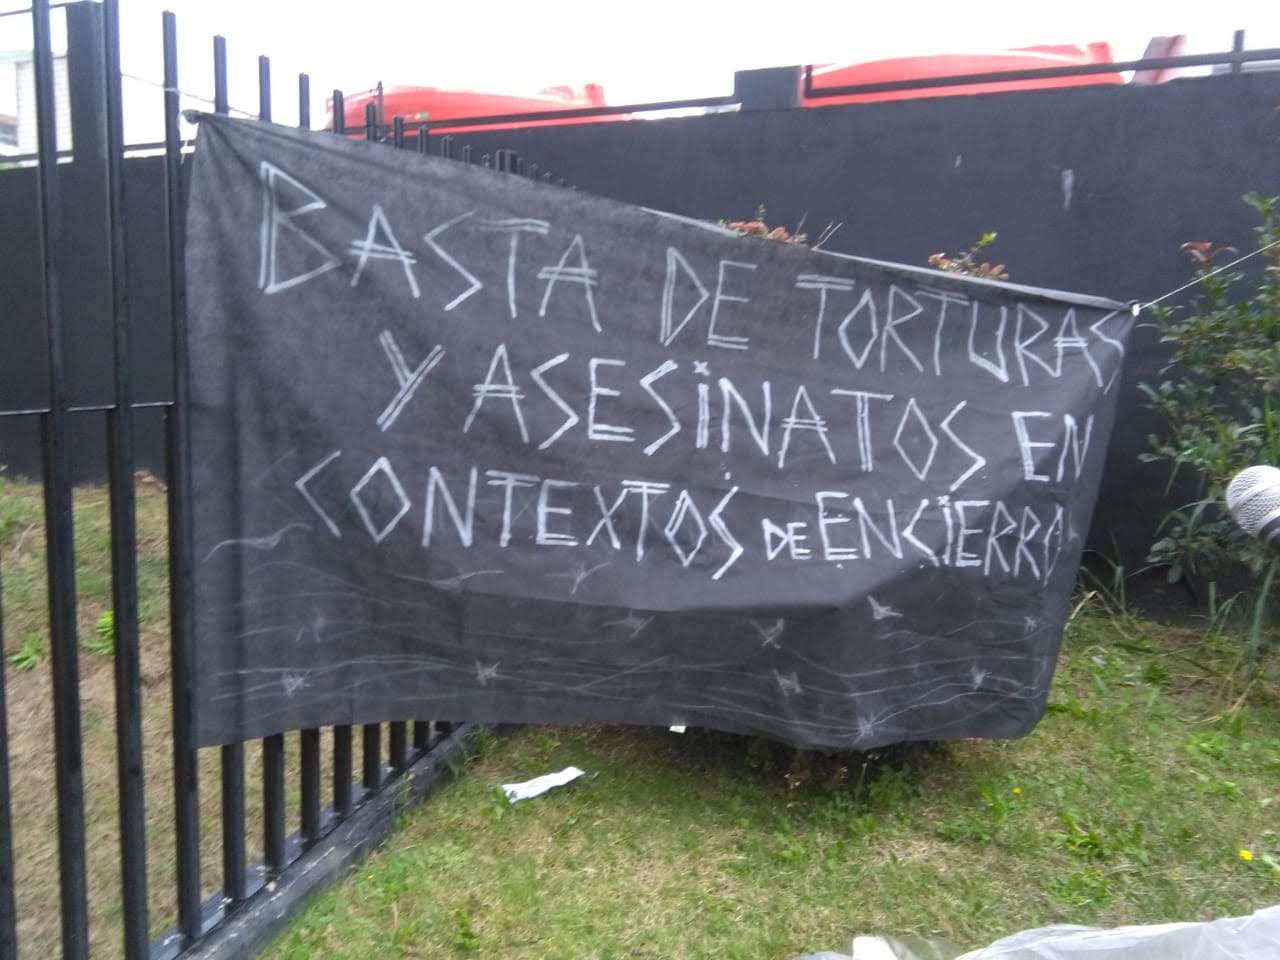 BASTA DE TORTURAS
Y ASESINATOS EN
CONTEXTOS DE ENCIERRO